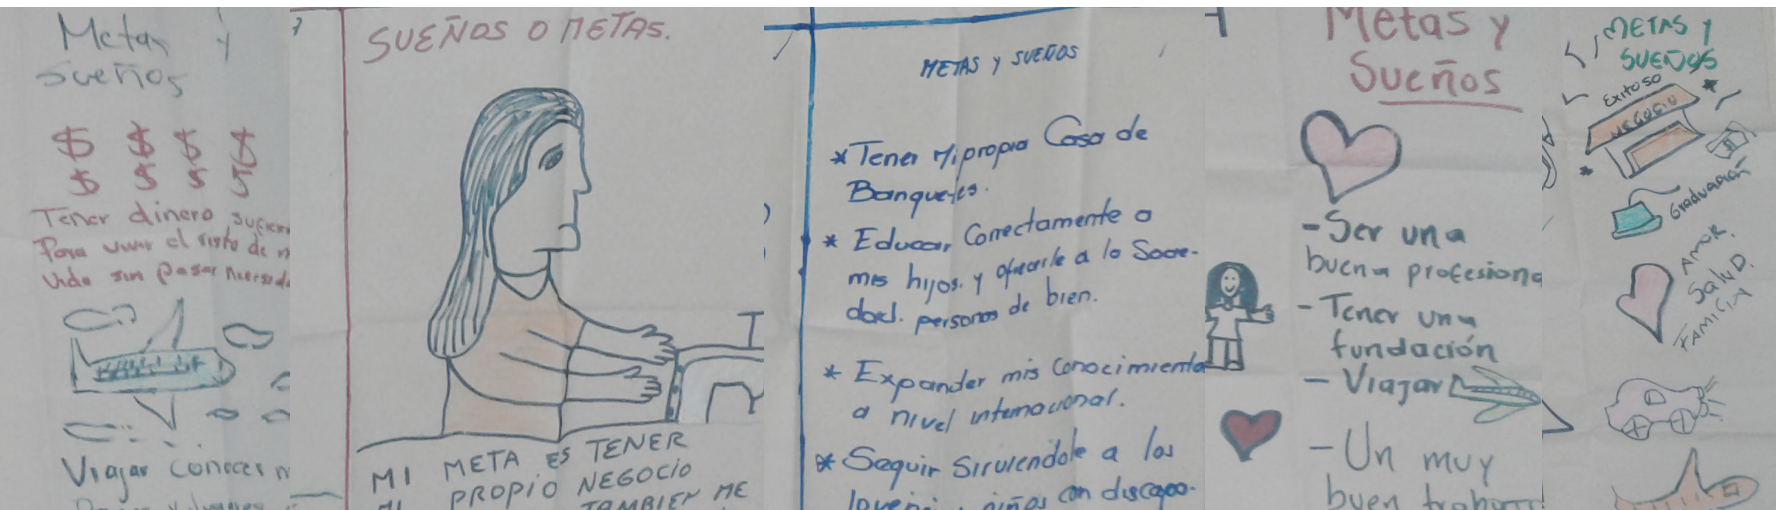 Metas y
Sueños
$ $ $ $
$ $ $ $
Tener dinero
Para vivir el resto de
vida sin pasar
Viajar conocer
SUEÑOS O METAS.
MI META ES TENER
MI PROPIO NEGOCIO
TAMBIEN ME
METAS Y SUEÑOS
* Tener Mi propia Casa de
Banquetes.
* Educar Correctamente a
mis hijos. y ofrecerle a la Socie-
dad. personas de bien.
* Expander mis Conocimiento
a nivel internacional.
* Seguir Sirviendole a los
y niños con discapa-
Metas y
Sueños
- Ser una
buena profesiona
- Tener una
fundación
- Viajar
- Un muy
buen trabajo
METAS Y
SUEÑOS
Exitoso
NEGOCIO
$
Graduación
AMOR.
SALUD.
FAMILIA